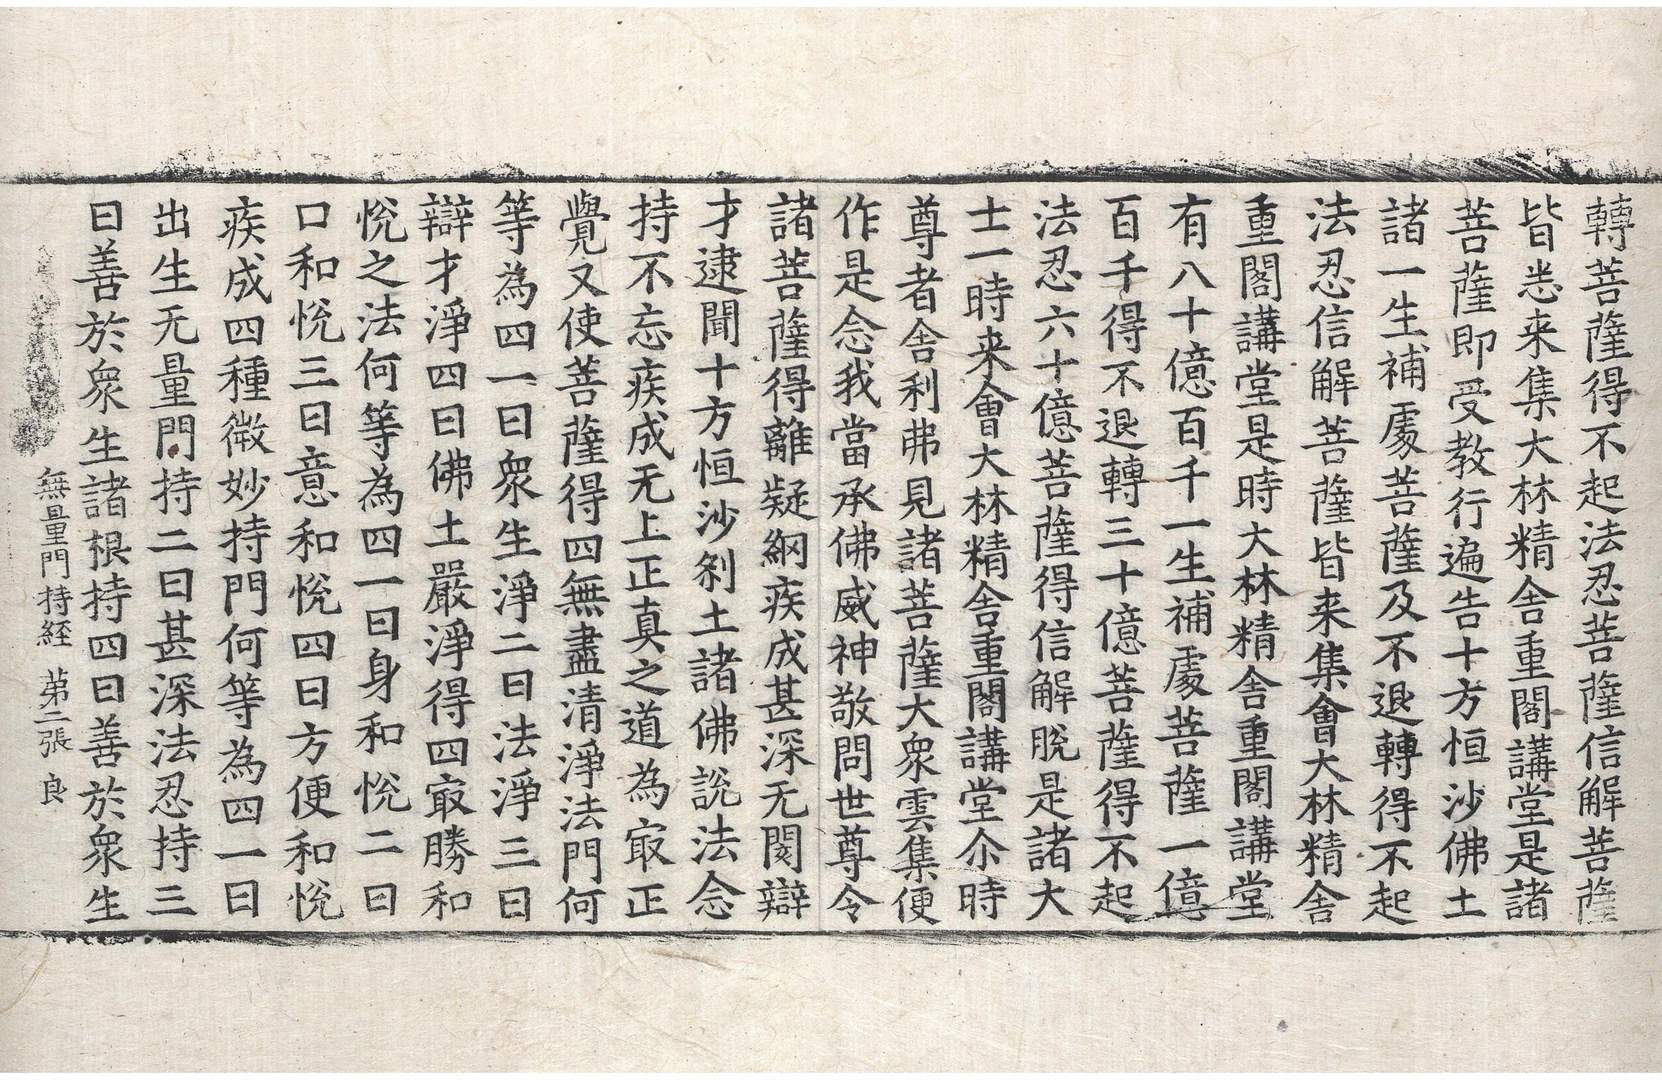 轉菩薩得不起法忍菩薩信解菩薩
皆悉来集大林精舍重閣講堂是諸
菩薩即受教行遍告十方恒沙佛土
諸一生補處菩薩及不退轉得不起
法忍信解菩薩皆来集會大林精舍
重閣講堂是時大林精舍重閣講堂
有八十億百千一生補處菩薩一億
百千得不退轉三十億菩薩得不起
法忍六十億菩薩得信解脫是諸大
士一時来會大林精舍重閣講堂尒時
尊者舍利弗見諸菩薩大衆雲集便
作是念我當承佛威神敬問世尊令
諸菩薩得離疑網疾成甚深无閡辯
才逮聞十方恒沙剎土諸佛說法念
持不忘疾成无上正真之道為㝡正
覺又使菩薩得四無盡清淨法門何
等為四一曰衆生淨二曰法淨三曰
辯才淨四曰佛土嚴淨得四㝡勝和
悅之法何等為四一曰身和悅二曰
口和悅三曰意和悅四曰方便和悅
疾成四種微妙持門何等為四一曰
出生无量門持二曰甚深法忍持三
曰善於衆生諸根持四曰善於衆生
無量門持経 苐二張 良